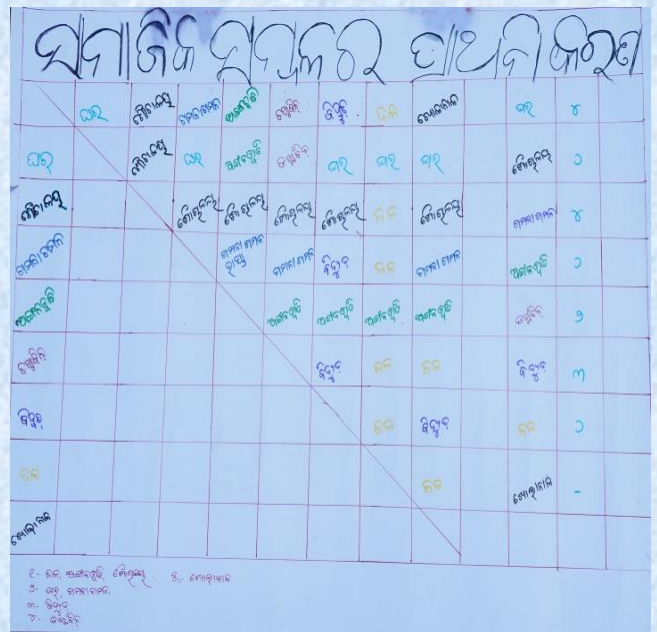 ସମାଜିକ ସମ୍ବଳର ପ୍ରାଥନା କରଣ
ଘର ଶୌଚାଳୟ ଗମନାଗମନ ଅଙ୍ଗନୱାଡ଼ି ଡଷ୍ଟବିନ୍ ବିଦ୍ୟୁତ୍ ଜଳ ଖୋଲାନାଳ ଘର ୪
ଘର ଶୌଚାଳୟ ଘର ଅଙ୍ଗନୱାଡ଼ି ଡଷ୍ଟବିନ୍ ଘର ଘର ଘର ଶୌଚାଳୟ ୨
ଶୌଚାଳୟ ଶୌଚାଳୟ ଶୌଚାଳୟ ଶୌଚାଳୟ ଶୌଚାଳୟ ଜଳ ଶୌଚାଳୟ ଗମନାଗମନ ୪
ଗମନାଗମନ ଗମନାଗମନ ଗମନାଗମନ ବିଦ୍ୟୁତ୍ ଜଳ ଗମନାଗମନ ଅଙ୍ଗନୱାଡ଼ି
ଅଙ୍ଗନୱାଡ଼ି ଅଙ୍ଗନୱାଡ଼ି ଅଙ୍ଗନୱାଡ଼ି ଅଙ୍ଗନୱାଡ଼ି ଅଙ୍ଗନୱାଡ଼ି ଡଷ୍ଟବିନ୍
ଡଷ୍ଟବିନ୍ ବିଦ୍ୟୁତ୍ ଜଳ ଜଳ ବିଦ୍ୟୁତ୍ ୩
ବିଦ୍ୟୁତ୍ ଜଳ ବିଦ୍ୟୁତ୍ ଜଳ
ଜଳ ଜଳ ଖୋଲାନାଳ -
ଖୋଲାନାଳ
୧- ଜଳ, ଅଙ୍ଗନୱାଡ଼ି, ଶୌଚାଳୟ ୫- ଖୋଲାନାଳ
୨- ଘର, ଗମନାଗମନ
୩- ବିଦ୍ୟୁତ୍
୪- ଡଷ୍ଟବିନ୍